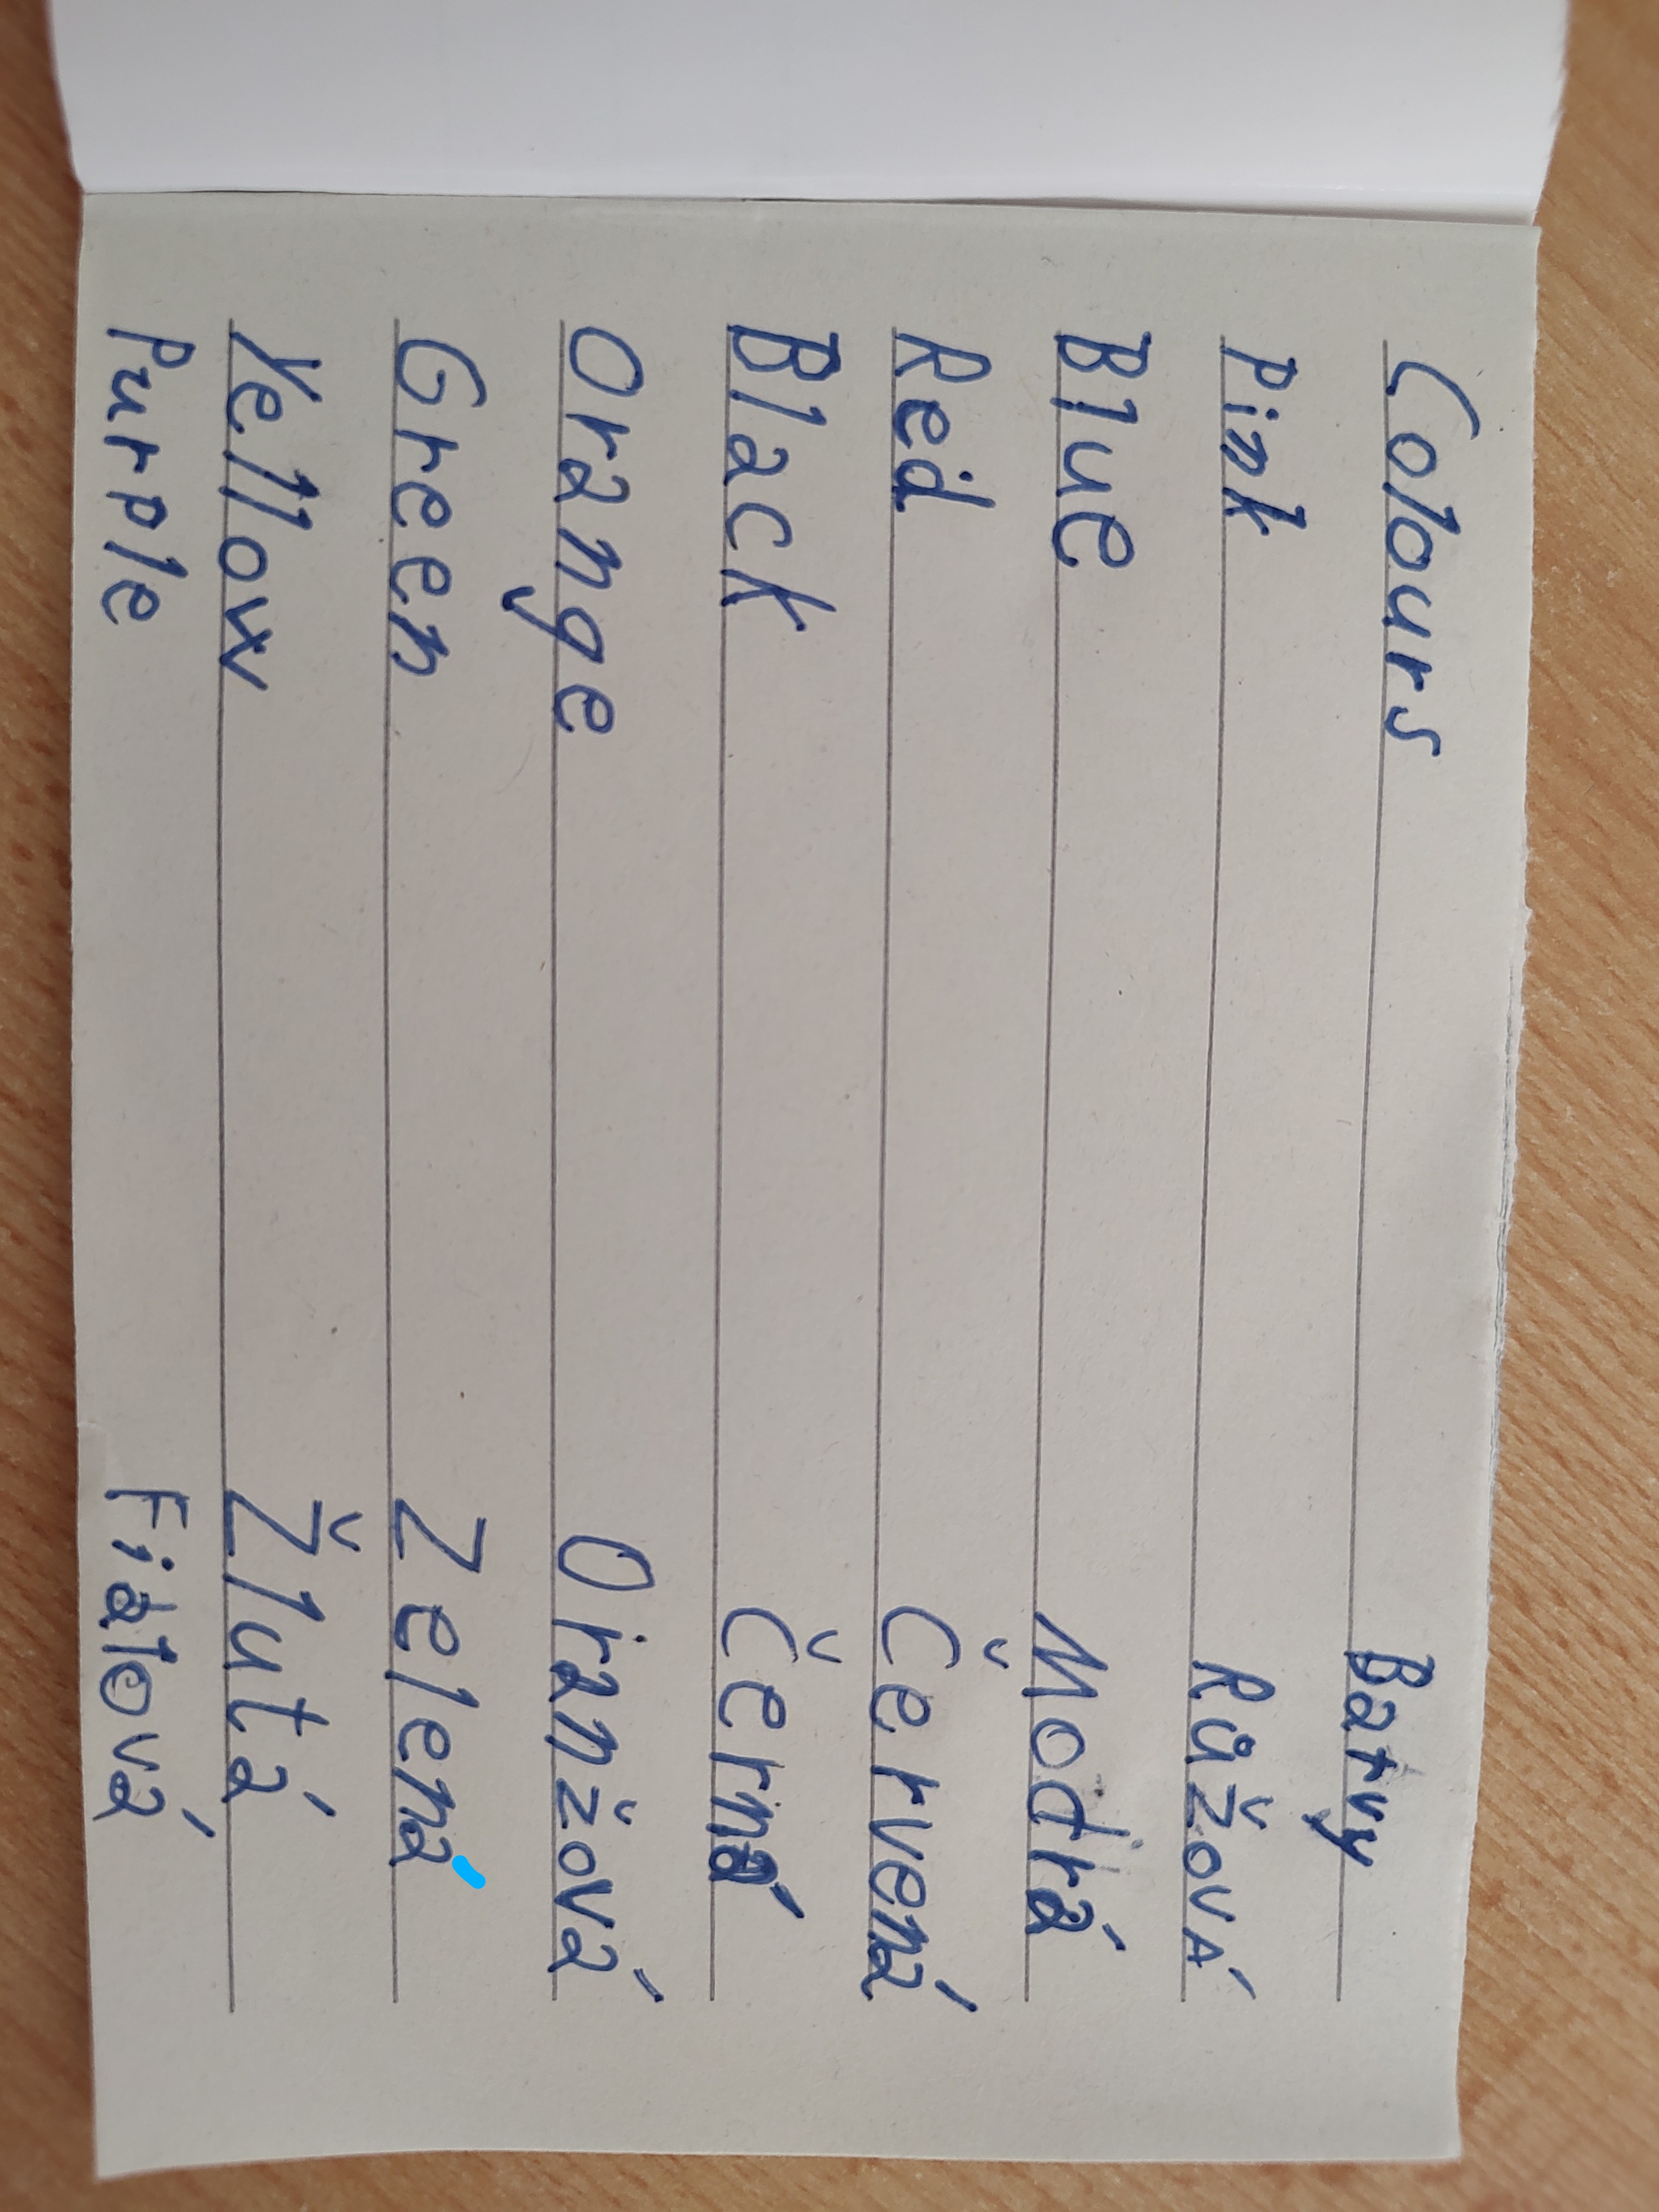 Colours Barvy
Pink Růžová
Blue Modrá
Red Červená
Black Černá
Orange Oranžová
Green Zelená
Yellow Žlutá
Purple Fialová